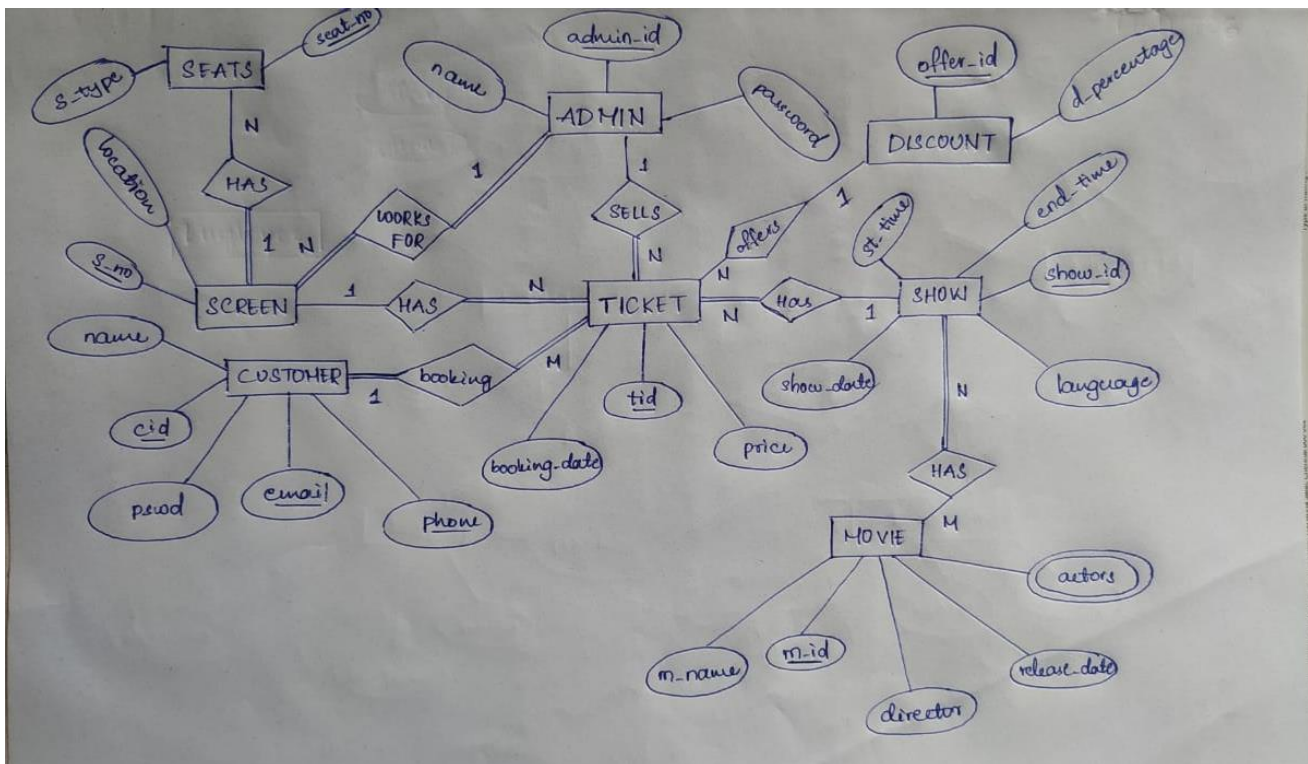 seat-no
s-type
SEATS
N
HAS
1
location
s-no
SCREEN
admin-id
name
ADMIN
password
1
WORKS
FOR
N
1
SELLS
N
offer-id
d-percentage
DISCOUNT
1
offers
N
1
HAS
N
TICKET
N
Has
1
SHOW
st-time
end-time
show-id
language
show-date
name
CUSTOMER
1
booking
M
cid
pswd
email
phone
booking-date
tid
price
N
HAS
M
MOVIE
actors
m-name
m-id
director
release-date